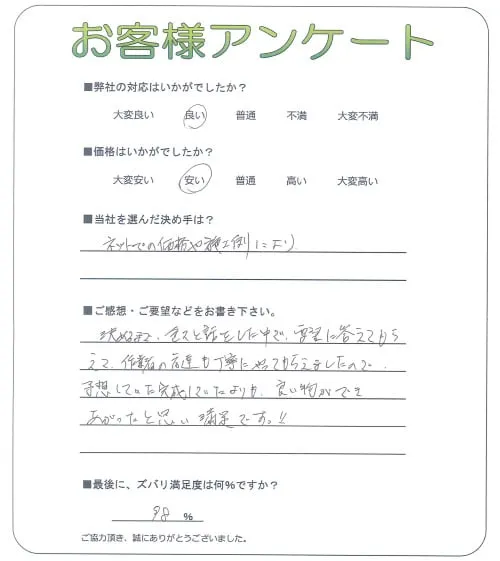 お客様アンケート
■弊社の対応はいかがでしたか？
大変良い 良い 普通 不満 大変不満
■価格はいかがでしたか？
大変安い 安い 普通 高い 大変高い
■当社を選んだ決め手は？
ネットでの価格や施工例により
■ご感想・ご要望などをお書き下さい。
決めるまで、色々と話をした中で、要望に答えてもら
えて、作業の も丁寧にやってもらえましたので、
予想していた完成していたよりも、良い物ができ
あがったと思い満足です。!!
■最後に、ズバリ満足度は何％ですか？
98 %
ご協力頂き、誠にありがとうございました。